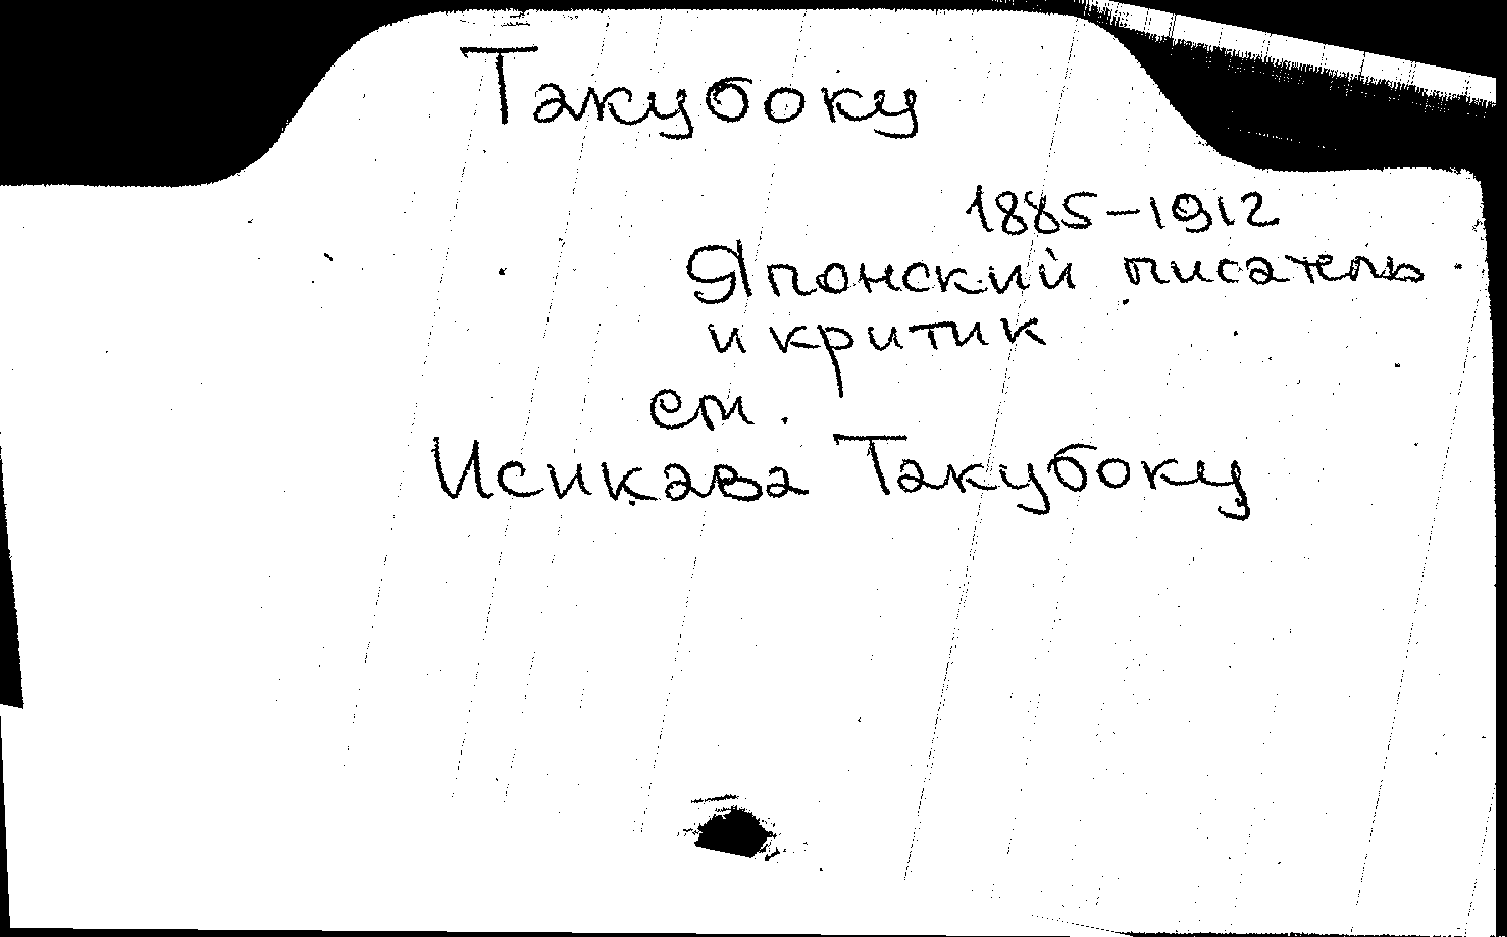 Такубоку
1885-1912
Японский писатель
и критик
см.
Исикава Такубоку